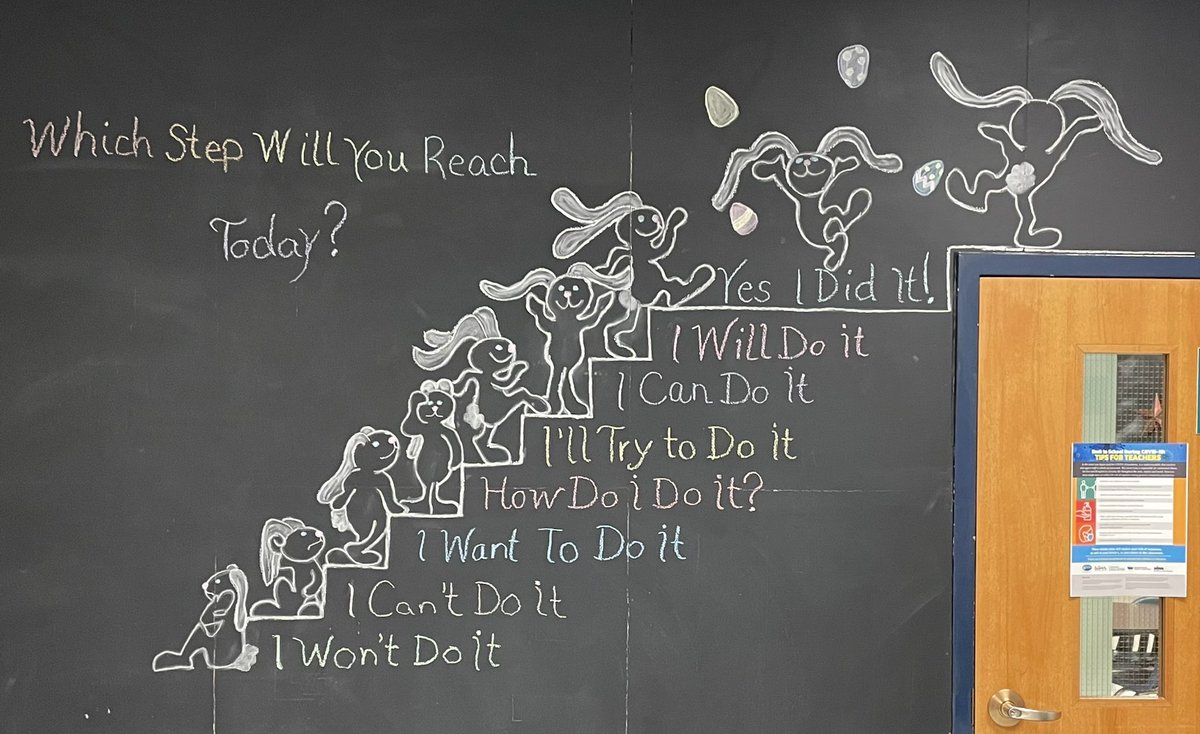 Which Step Will You Reach
Today?
Yes I Did It!
I Will Do it
I Can Do it
I'll Try to Do it
How Do i Do it?
I Want To Do it
I Can't Do it
I Won't Do it
Back to School During COVID-19:
TIPS FOR TEACHERS